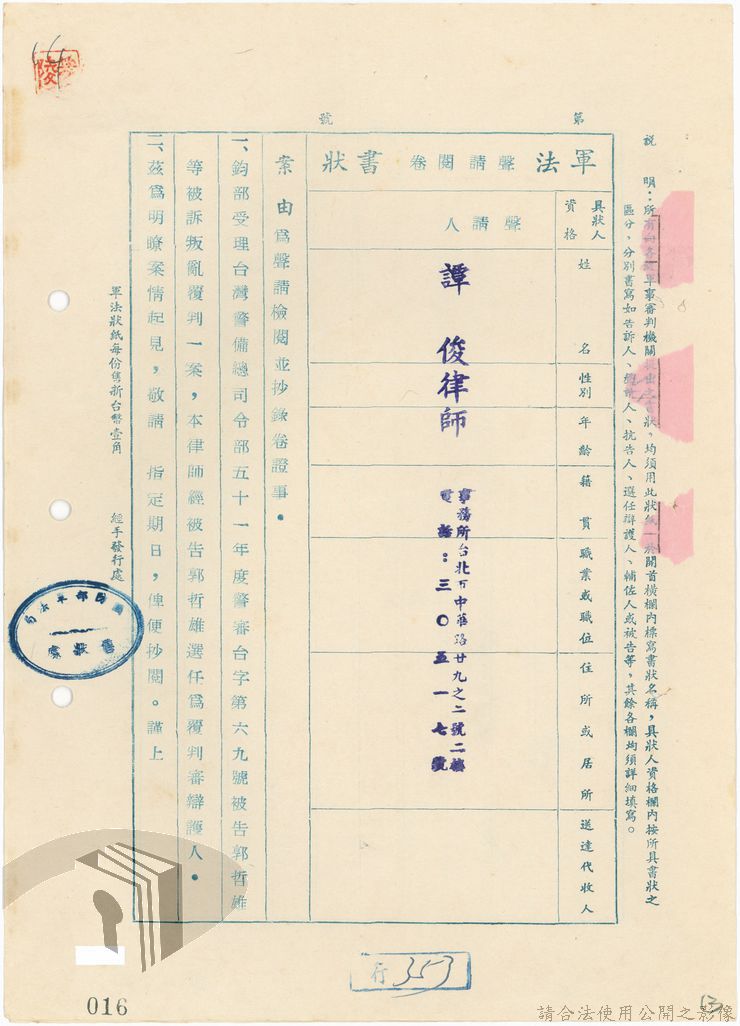 第 號
說 明：所有向各級軍事審判機關提出之書狀，均須用此狀紙一於開首橫欄內標寫書狀名稱，具狀人資格欄內按所具書狀之
區分，分別書寫如告訴人、聲請人、抗告人、選任辯護人、輔佐人或被告等，其餘各欄均須詳細填寫。
軍法聲請閱卷書狀
具狀人資格
聲請人
姓名
性別
年齡
籍貫
職業或職位
住所或居所
送達代收人
譚俊律師
事務所台北市中華路廿九之二號二樓
電話：三〇五一七號
案由為聲請檢閱並抄錄卷證事。
一、鈞部受理台灣警備總司令部五十一年度警審台字第六九號被告郭哲雄
等被訴叛亂覆判一案，本律師經被告郭哲雄選任為覆判審辯護人。
二、茲為明瞭案情起見，敬請 指定期日，俾便抄閱。謹上
軍法狀紙每份售新台幣壹角 經手發行處
國防部軍法局
售狀處
行353
016
13
請合法使用公開之影像